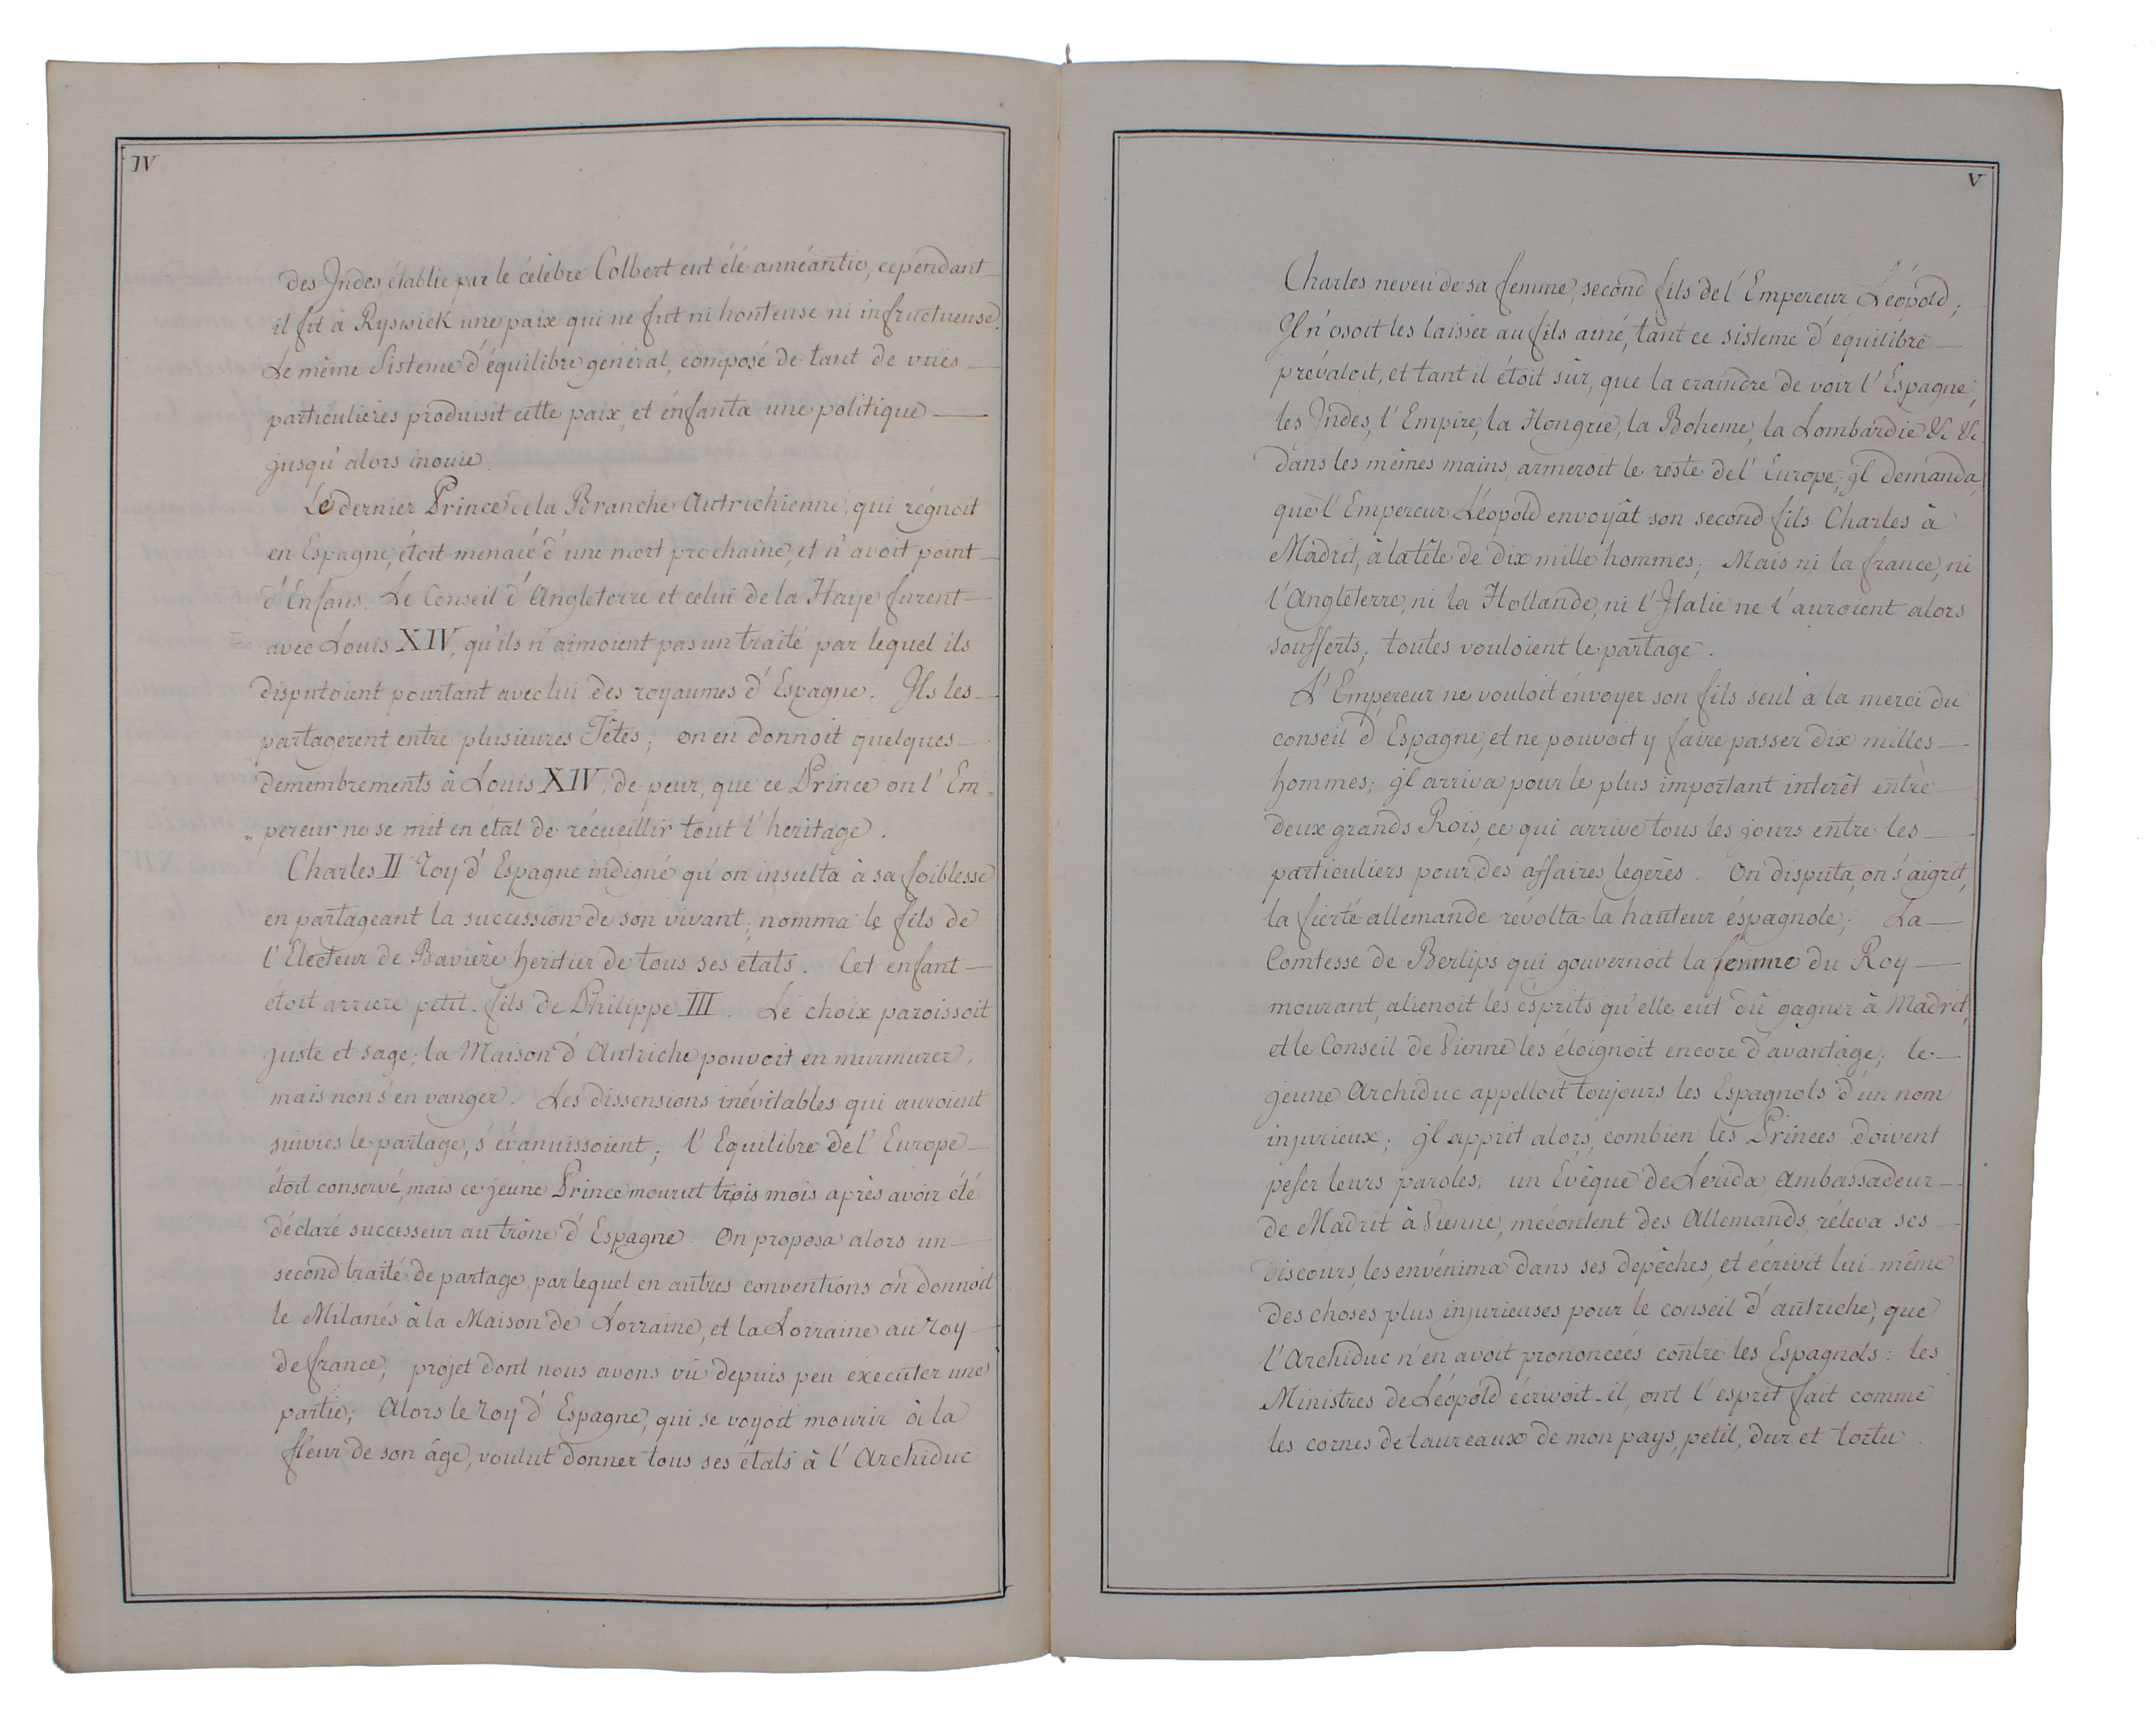 IV
des Jndes, établie par le célébre Colbert eut élé annéantie, cependant
il fit à Ryswick une paix qui ne fut ni honteuse ni infructueuse.
Le même Sisteme d'équilibre general, composé de tant de vuës
particulieres produisit cette paix, et énfanta une politique
jusqu'alors inouie.
Le dernier Prince de la Branche Autrichienne, qui régnoit
en Espagne, étoit menacé d'une mort prochaine, et n'avoit point
d'Enfans. Le Conseil d'Angleterre et celui de la Haye furent
avec Louis XIV, qu'ils n'aimoient pas un traité par lequel ils
disputoient pourtant avec lui des royaumes d'Espagne. Jls les
partagerent entre plusieures Têtes; on en donnoit quelques
demembrements à Louis XIV, de peur, que ce Prince ou l'Em„
„pereur ne se mit en état de récueillir tout l'heritage.
Charles II roy d'Espagne indigné qu'on insulta à sa foiblesse
en partageant la succession de son vivant; nomma le fils de
l'Electeur de Baviere heritier de tous ses états. Cet enfant
étoit arriere petit-fils de Philippe III. Le choix paroissoit
juste et sage; la Maison d'Autriche pouvoit en murmurer,
mais non s'en vanger. Les dissensions inévitables qui auroient
suivies le partage, s'évanuissoient; l'Equilibre de l'Europe
étoit conservé, mais ce jeune Prince mourut trois mois après avoir élé
déclaré successeur au trône d'Espagne. On proposa alors un
second traité de partage, par lequel en autres conventions on donnoit
le Milanés à la Maison de Lorraine, et la Lorraine au roy
de france; projet dont nous avons vû depuis peu executer une
partie; Alors le roy d'Espagne, qui se voyoit mourir à la
fleur de son âge, voulut donner tous ses états à l'Archiduc
V
Charles neveu de sa femme, second fils de l'Empereur Léopold;
Jl n'osoit les laisser au fils ainé, tant ce sisteme d'équilibre
prévaloit, et tant il étoit sûr, que la craindre de voir l'Espagne,
les Jndes, l'Empire, la Hongrie, la Boheme, la Lombardie &c &c.
dans les mêmes mains, armeroit le reste de l'Europe; jl demanda,
que l'Empereur Léopold envoyât son second fils Charles à
Madrit, à la tête de dix mille hommes; Mais ni la france, ni
l'Angleterre, ni la Hollande, ni l'Jtalie ne l'auroient alors
soufferts; toutes vouloient le partage.
L'Empereur ne vouloit énvoyer son fils seul à la merci du
conseil d'Espagne, et ne pouvoit y faire passer dix milles
hommes; jl arriva pour le plus important interêt entre
deux grands Rois, ce qui arrive tous les jours entre les
particuliers pour des affaires legeres. On disputa, on s'aigrit,
la fierté allemande révolta la hauteur éspagnole; La
Comtesse de Berlips qui gouvernoit la femme du Roy
mourant, alienoit les ésprits qu'elle eut dû gagner à Madrit,
et le Conseil de Vienne les éloignoit encore d'avantage; le
jeune Archiduc appelloit toujours les Espagnols d'un nom
injurieux; jl apprit alors, combien les Princes doivent
peser leurs paroles; un Evêque de Lerida, Ambassadeur
de Madrit à Vienne, mécontent des Allemands, réleva ses
discours, les envénima dans ses depêches, et écrivit lui-même
des choses plus injurieuses pour le conseil d'autriche, que
l'Archiduc n'en avoit prononcéés contre les Espagnols: les
Ministres de Léopold écrivoit-il, ont l'esprit fait comme
les cornes de taureaux de mon pays, petit, dur et tortu.